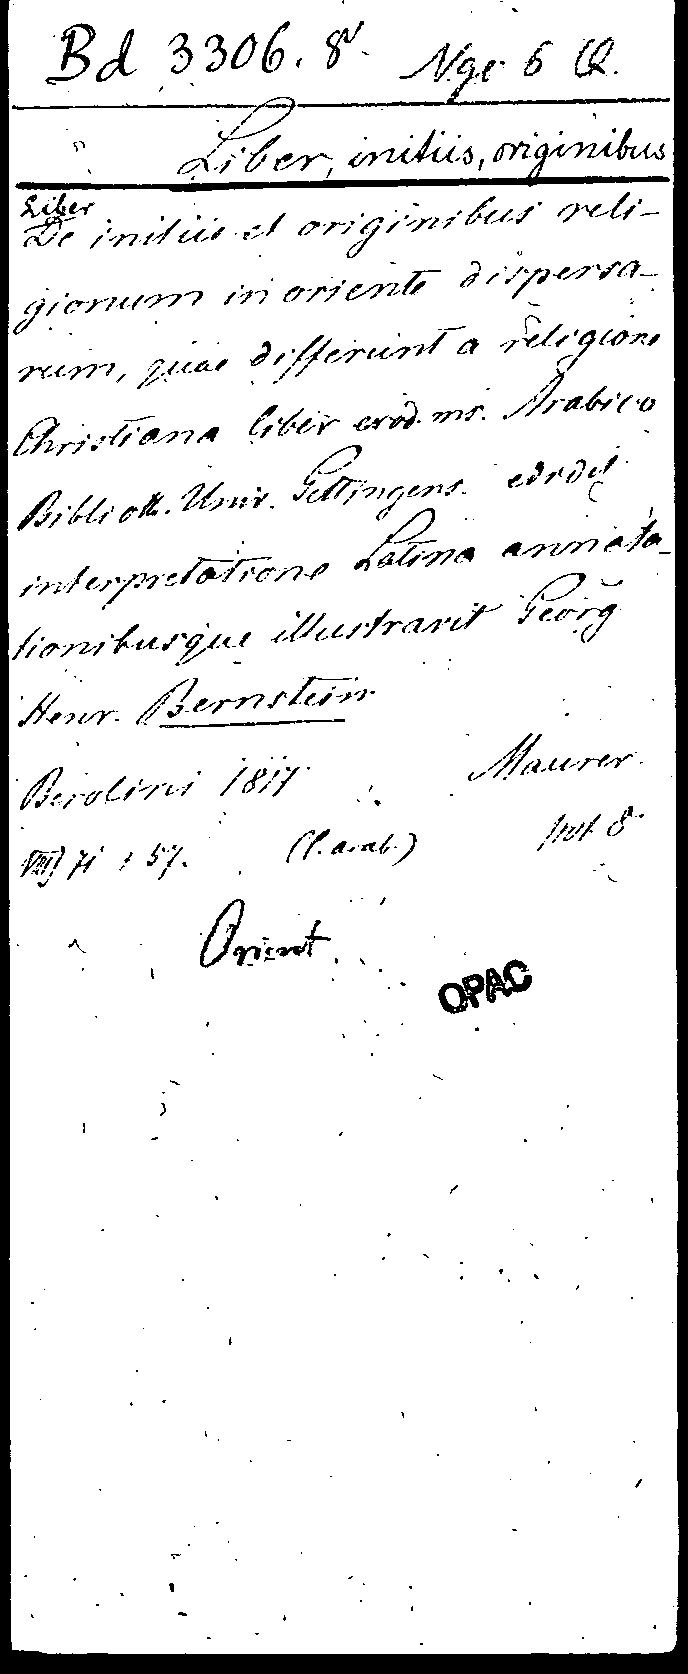 Bd 3306. 8º Nge 6 Q.
Liber, initiis, originibus
Liber
De initiis et originibus reli-
gionum in oriente dispersa-
rum, quae differunt a religione
Christiana liber e cod. ms. Arabico
Biblioth. Univ. Gottingens. edidit
interpretatione Latina annota-
tionibusque illustravit Georg
Henr. Bernstein
Berolini 1817 Maurer
VIII, 71 + 57. (l. arab.) 8
Orient.
OPAC